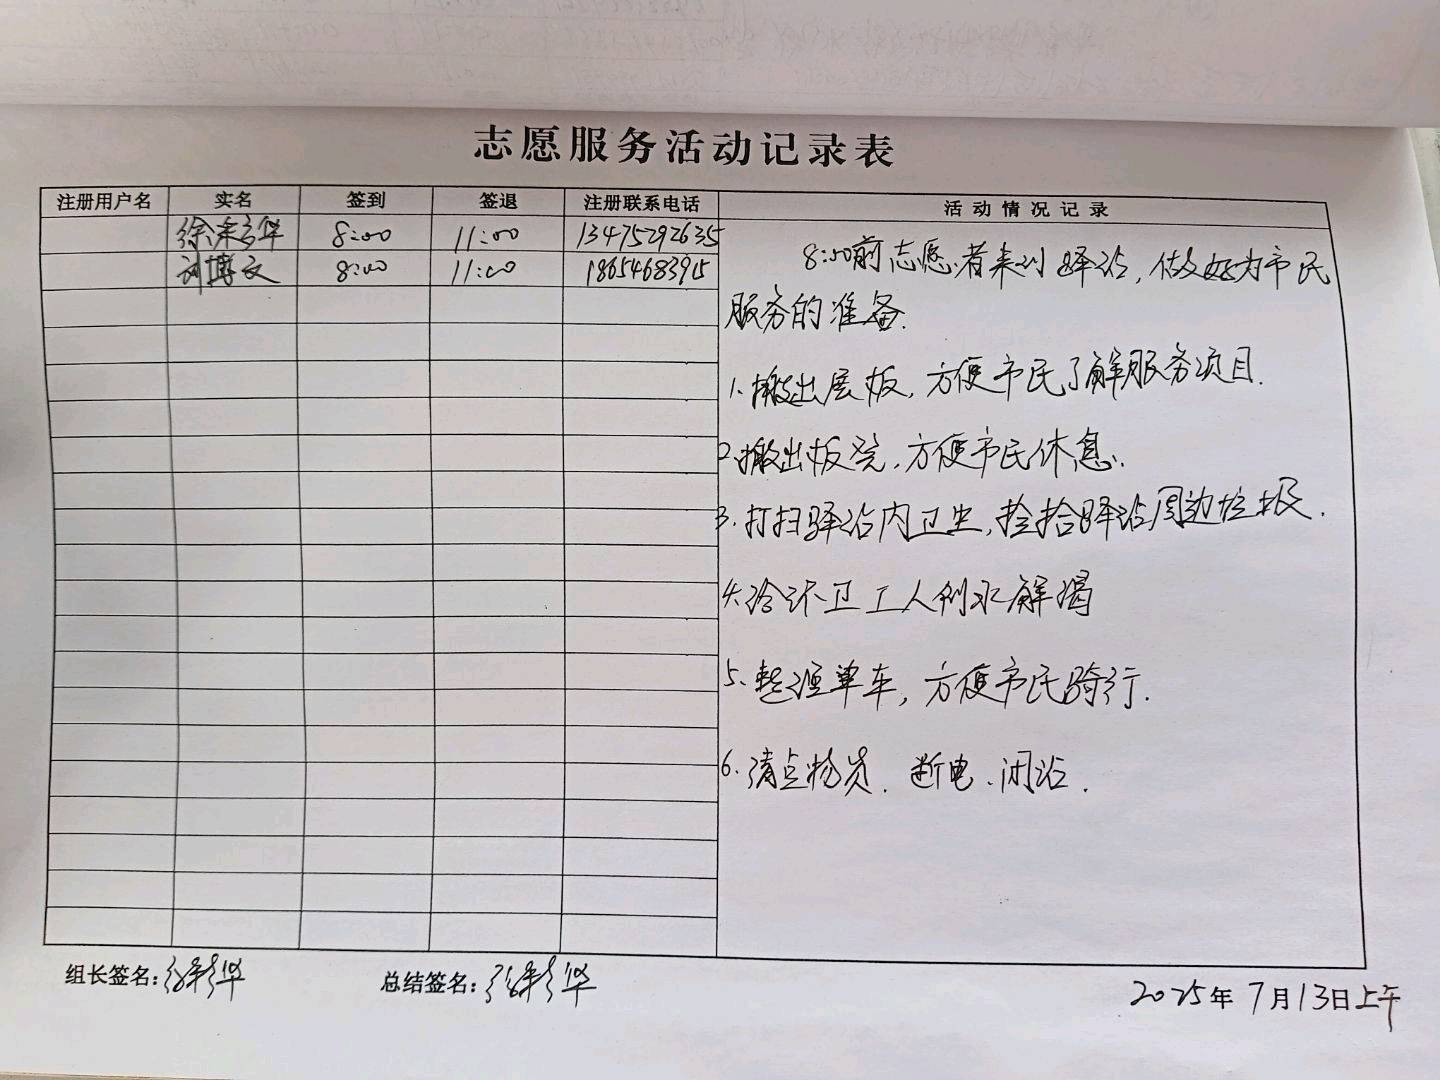 志愿服务活动记录表
注册用户名 实名 签到 签退 注册联系电话 活动情况记录
徐彩华 8:00 11:00 13475292635
刘博文 8:00 11:00 18654683915
8:00前志愿者来到驿站，做好为市民
服务的准备.
1.搬出展板，方便市民了解服务项目.
2.搬出板凳，方便市民休息.
3.打扫驿站内卫生，捡拾驿站周边垃圾.
4.给环卫工人倒水解渴
5.整理单车，方便市民骑行.
6.清点物资、断电、闭站.
组长签名：徐彩华 总结签名：徐彩华
2025年7月13日上午